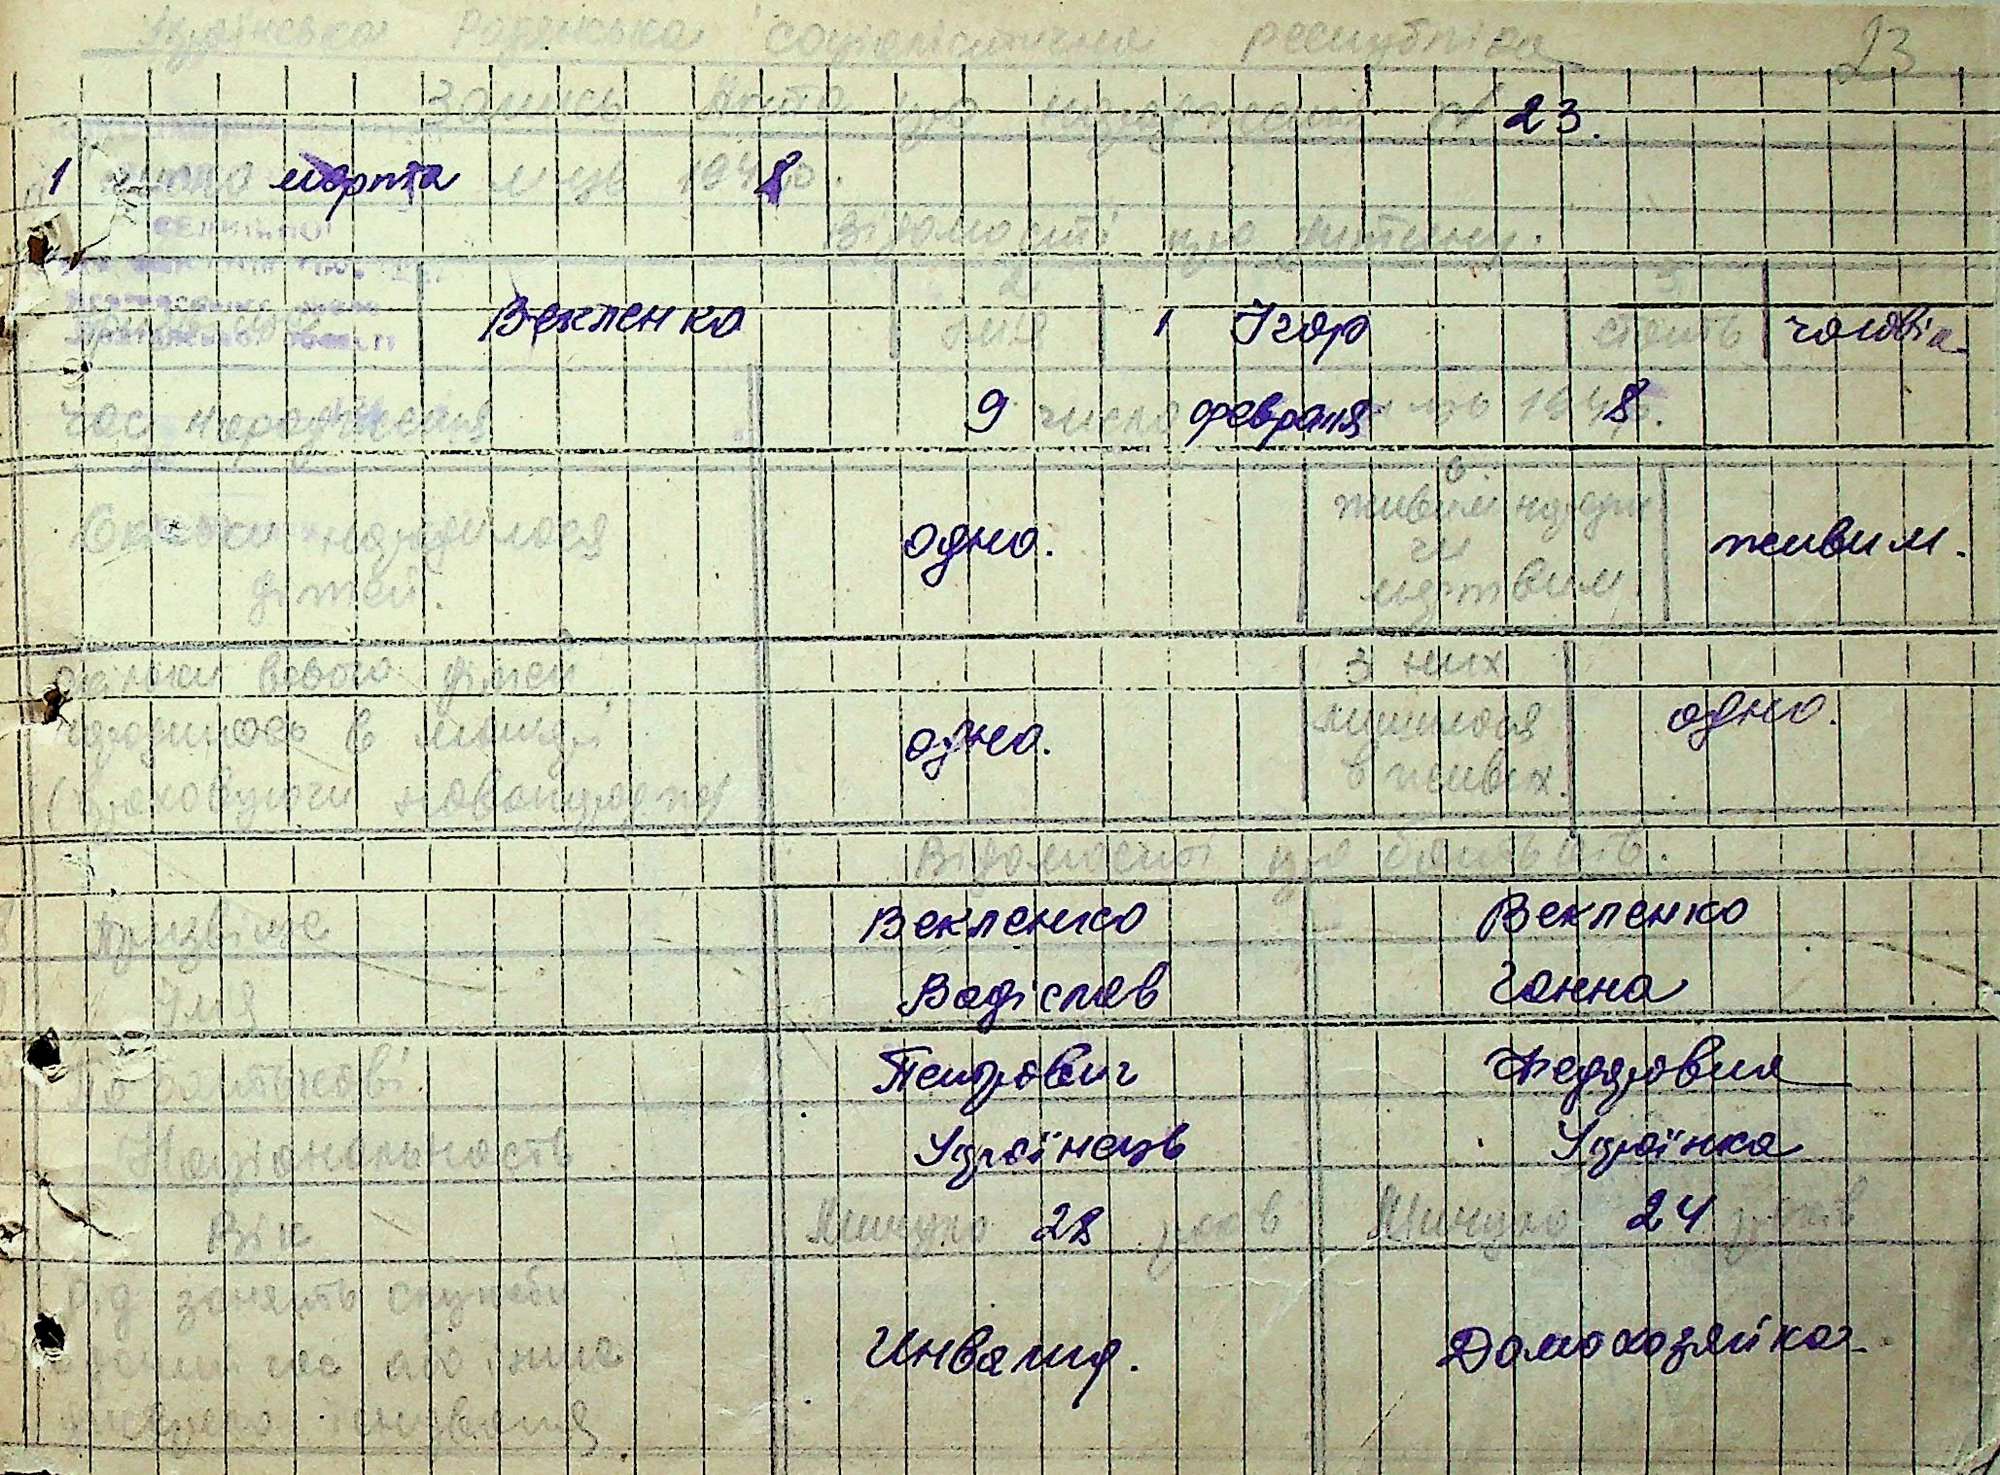 Українська Радянська соціалістична республіка 23
Запись Акта про народження № 23.
1 число марта м-ць 1948 р.
Відомості про дитину.
Векленко 2 імя 1 Ігор 3 стать чоловіч.
час народження 9 число февраля м-ць 1948 р.
Скільки народилося дітей. одно. живим народ. чи мертвим живим.
Скільки всього дітей народилось в матері (враховуючи новонародж) одно. з них лишилося в живих. одно.
Відомості про батьків.
Призвіще Векленко Векленко
Імя Вадіслав Ганна
По батькові Петрович Федоровна
Національность Українець Українка
Вік Минуло 28 років Минуло 24 років
Рід занять служби або інше джерело існування Инвалид. Домохозяйка.